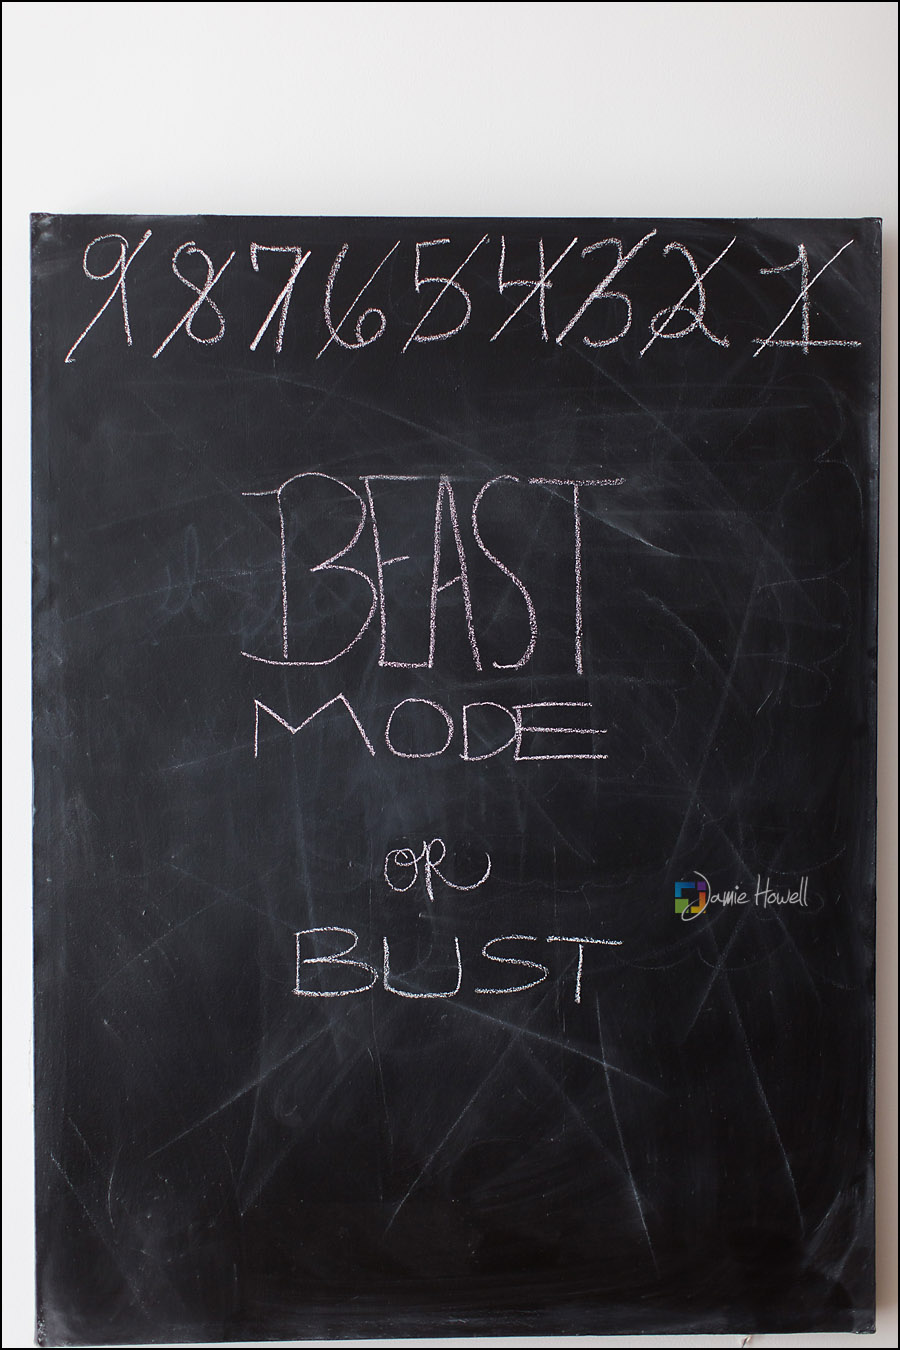 9 8 7 6 5 4 3 2 1
BEAST
MODE
OR
BUST
Jamie Howell